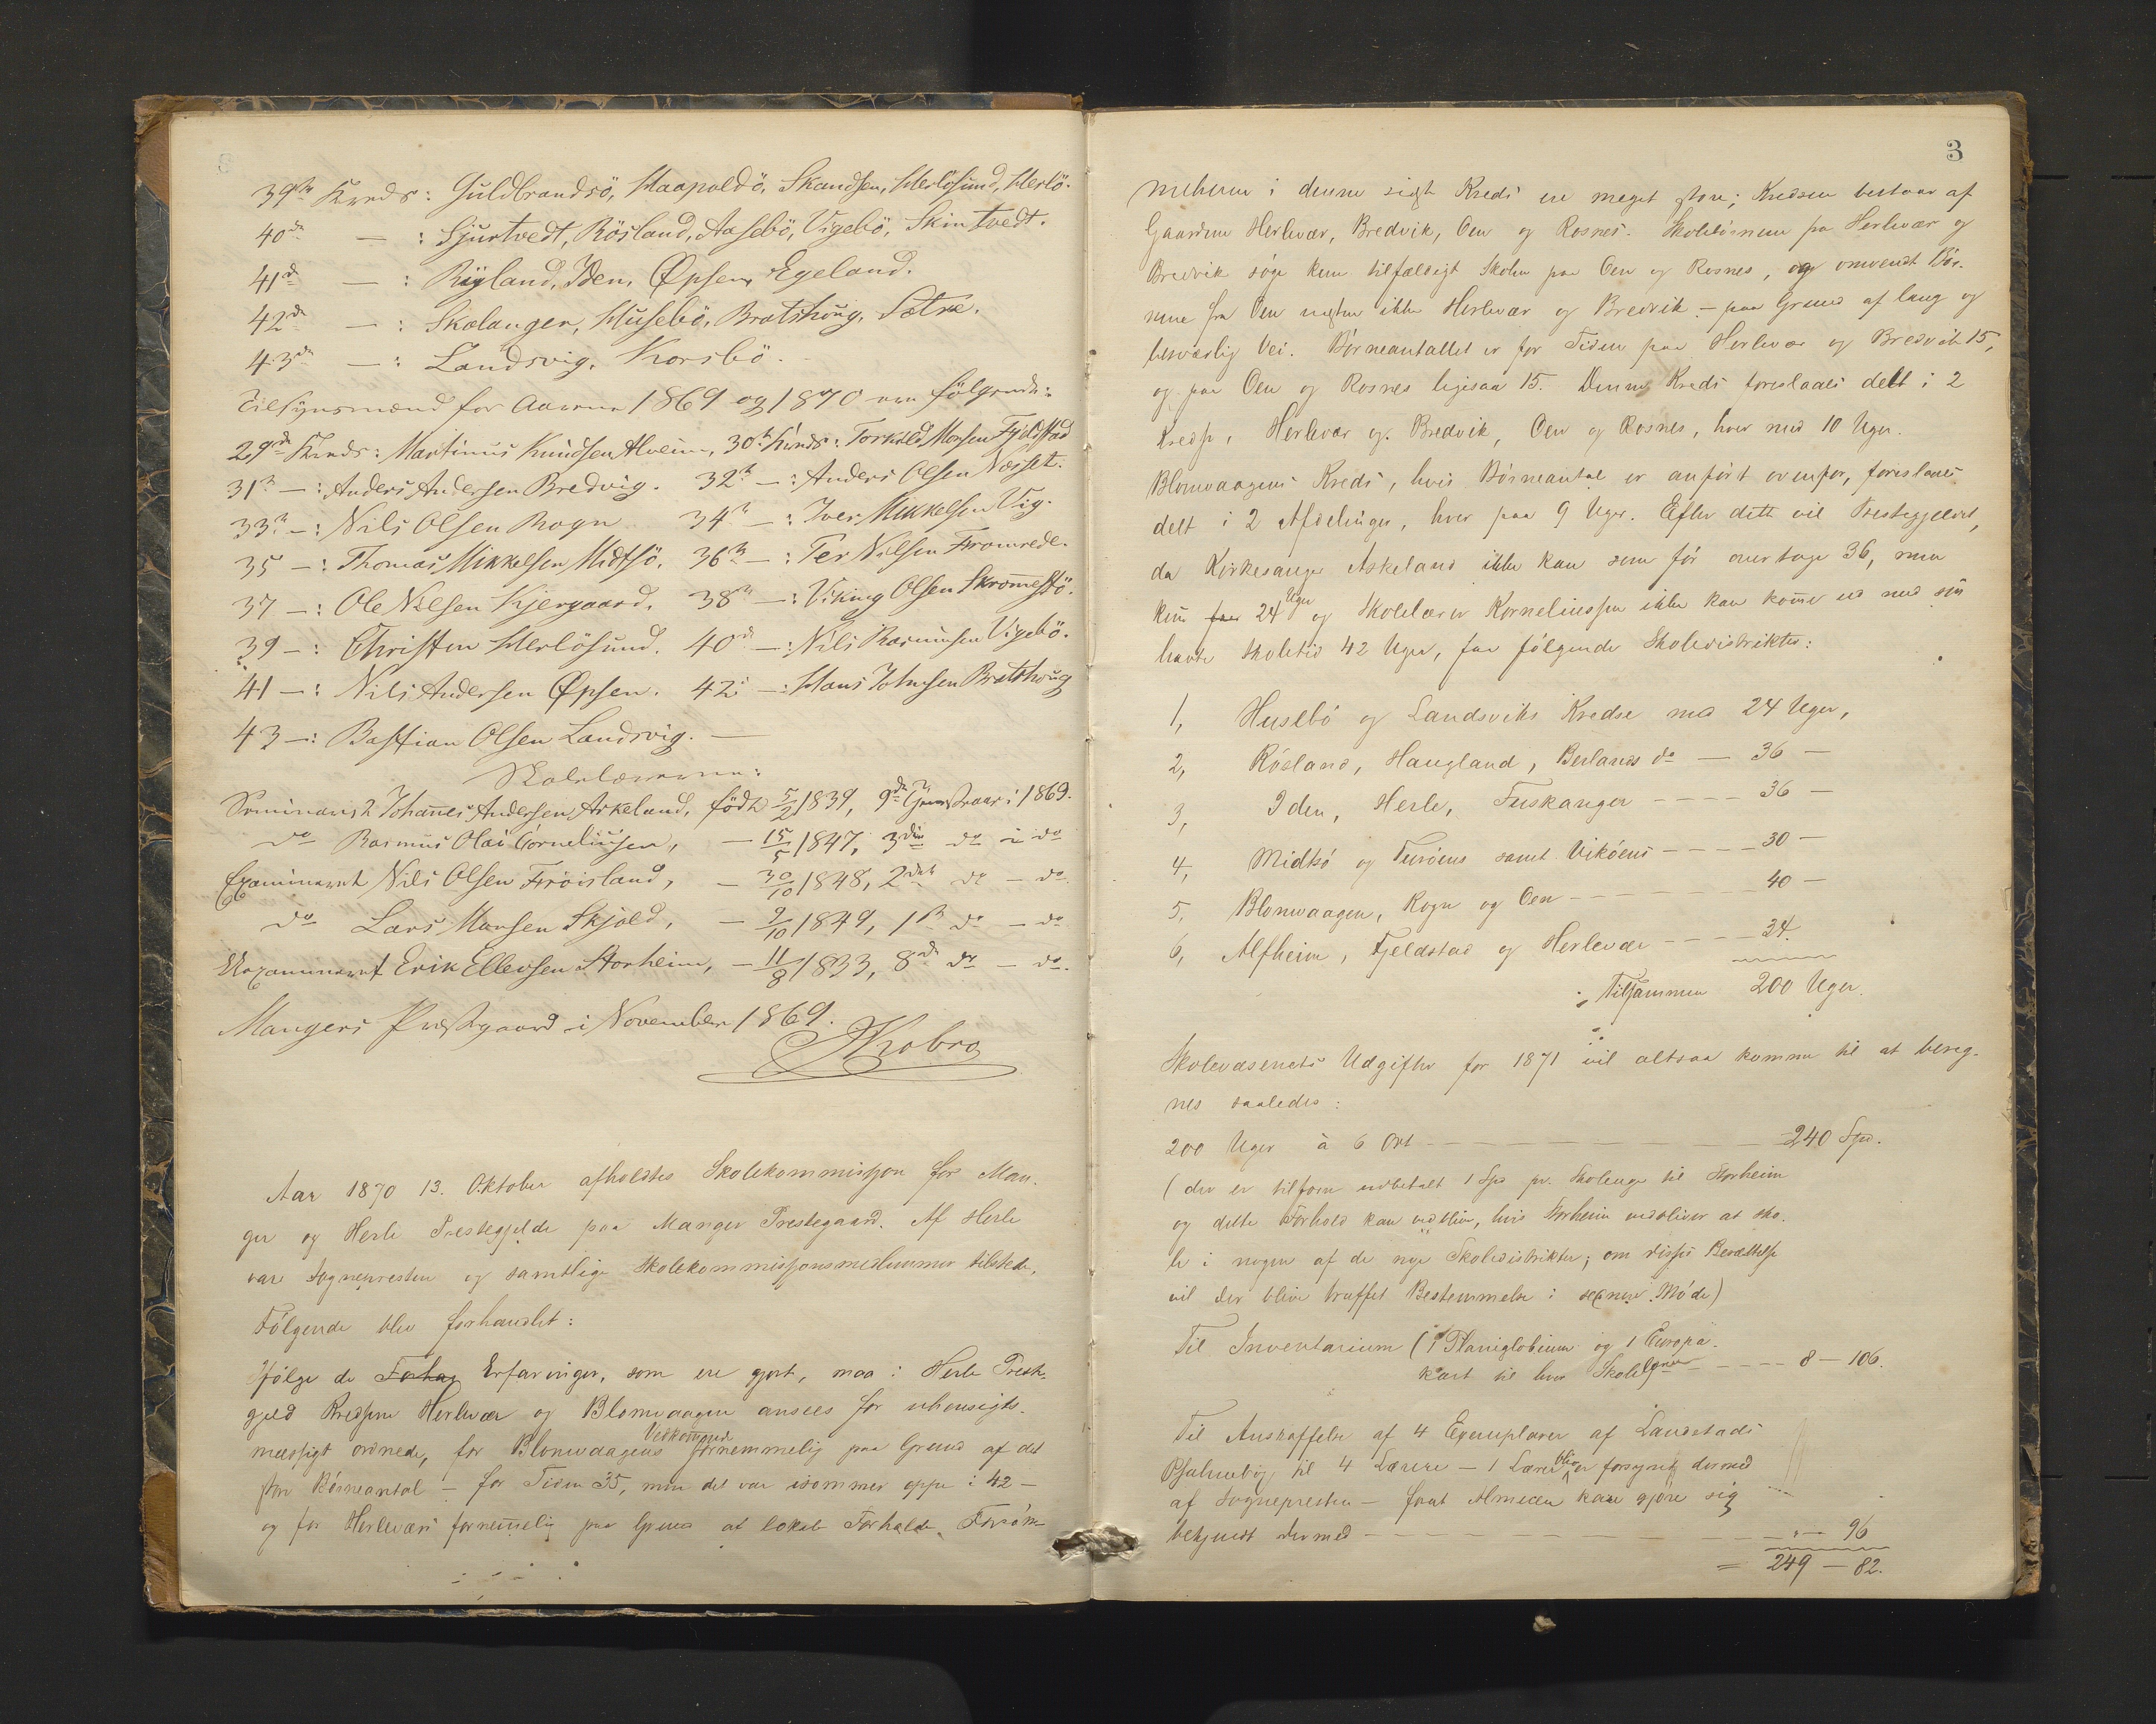 39te Kreds: Guldbrandsö, Haapoldö, Skandsen, Herlösund, Herlö.
40de — : Sjurtvedt, Rösland, Aasebö, Vigebö, Skintvedt.
41de — : Röyland, Iden, Øpsen, Egeland.
42de — : Skolanger, Husebö, Bratshoug, Sætre.
43de — : Landsvig, Korsbö.
Tilsynsmænd for Aarene 1869 og 1870 ere fölgende:
29de Kreds: Martinus Knudsen Alveim, 30te Kreds: Torkild Monsen Fjeldstad
31te — : Anders Andersen Bredvig. 32te — : Anders Olsen Næsset.
33te — : Nils Olsen Rogn 34te — : Iver Mikkelsen Vig.
35 — : Thomas Mikkelsen Midtsö. 36te — : Per Nilsen Fromrede.
37 — : Ole Nilsen Kjergaard. 38te — : Viking Olsen Skromestö.
39 — : Christen Herlösund. 40de — : Nils Rasmusen Vigebö.
41 — : Nils Andersen Øpsen. 42 — : Hans Johnsen Bratshoug
43 — : Bastian Olsen Landsvig. —
Skolelærerne:
Seminarist Johannes Andersen Askeland, födt 5/2 1839, 9de Tjenesteaar i 1869.
do Rasmus Olai Corneliusen, — 15/5 1847, 3die do i do
Examineret Nils Olsen Fröisland, — 30/10 1848, 2det do — do
do Lars Monsen Skjold, — 9/10 1849, 1ste do — do
Uexamineret Erik Ellevsen Storheim, — 11/8 1833, 8de do — do.
Mangers Præstegaard i November 1869.
Kobro
Aar 1870 13. Oktober afholdtes Skolekommission for Man-
ger og Herlö Prestegjelde paa Manger Prestegaard. Af Herlö
var Sognepresten og samtlige Skolekommissionsmedlemmer tilstede.
Fölgende blev forhandlet:
Ifölge de Forhag Erfaringer, som ere gjort, maa i Herlö Preste-
gjeld Kredsene Herlevær og Blomvaagen ansees for uhensigts-
mæssigt ordnede, for Blomvaagens Vedkommende fornemmelig paa Grund af det
store Börneantal — for Tiden 35, men det var isommer oppe i 42 —
og for Herleværs fornemelig paa Grund af lokale Forholde. Forsöm-
3
melserne i denne sidste Kreds ere meget store; Kredsen bestaar af
Gaardene Herlevær, Bredvik, Oen og Rosnes. Skolebörnene fra Herlevær og
Bredvik söge kun tilfældigt Skolen paa Oen og Rosnes, og omvendt Bör-
nene fra Oen næsten ikke Herlevær og Bredvik — paa Grund af lang og
besværlig Vei. Börneantallet er for Tiden paa Herlevær og Bredvik 15,
og paa Oen og Rosnes ligesaa 15. Denne Kreds foreslaaes delt i 2
Kredse, Herlevær og Bredvik, Oen og Rosnes, hver med 10 Uger.
Blomvaagens Kreds, hvis Börneantal er anfört ovenfor, foreslaaes
delt i 2 Afdelinger, hver paa 9 Uger. Efter dette vil Prestegjeldet,
da Kirkesanger Askeland ikke kan som för overtage 36, men
kun faa 24 Uger og Skolelærer Korneliussen ikke kan komme ud med sin
havte Skoletid 42 Uger, faa fölgende Skoledistrikter:
1, Husebö og Landsviks Kredse med 24 Uger,
2, Rösland, Haugland, Berlands do — 36 —
3, Iden, Herlö, Tuskanger — — — — 36 —
4, Midtsö og Turöens samt Viköens — — — — 30 —
5, Blomvaagen, Rogn og Oen — — — 40 —
6, Alfheim, Fjeldstad og Herlevær — — — — 34.
Tilsammen 200 Uger.
Skolevæsenets Udgifter for 1871 vil altsaa komme til at bereg-
nes saaledes:
200 Uger à 6 Ort — — — — — — 240 Spd.
(der er tilforn udbetalt 1 Spd pr. Skoleuge til Storheim
og dette Forhold kan vedblive, hvis Storheim vedbliver at sko-
le i nogen af de nye Skoledistrikter; om disses Besættelse
vil der blive truffet Bestemmelse i senere Möde)
Til Inventarium (1 Planiglobium og 1 Europa-
kart til hver Skolelærer — — — — 8 — 106.
Til Anskaffelse af 4 Exemplarer af Landstads
Psalmebog til 4 Lærere — 1 Lærer blev forsynet dermed
af Sognepresten — forat Almuen kan gjöre sig
bekjendt dermed — — — — — " — 96
= 249 — 82.